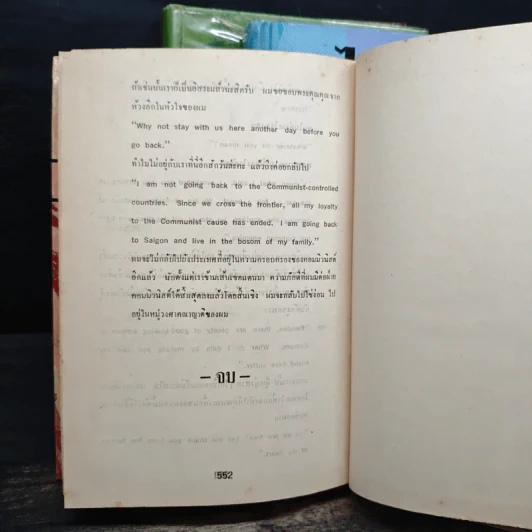 ถ้าเช่นนั้นเราก็เป็นอิสระแล้วน่ะสิครับ ผมขอขอบพระคุณคุณจาก
ห้วงลึกในหัวใจของผม
"Why not stay with us here another day before you
go back."
ทำไมไม่อยู่กับเราที่นี่อีกสักวันล่ะคะ แล้วถึงค่อยกลับไป
"I am not going back to the Communist-controlled
countries. Since we cross the frontier, all my loyalty
to the Communist cause has ended. I am going back
to Saigon and live in the bosom of my family."
ผมจะไม่กลับไปยังประเทศที่อยู่ในความครอบครองของคอมมิวนิสต์
อีกแล้ว นับตั้งแต่เราข้ามเส้นเขตแดนมา ความภักดีที่ผมมีต่อฝ่าย
คอมมิวนิสต์ได้สิ้นสุดลงแล้วโดยสิ้นเชิง ผมจะกลับไปไซ่ง่อน ไป
อยู่ในหมู่วงศาคณาญาติของผม
– จบ –
552